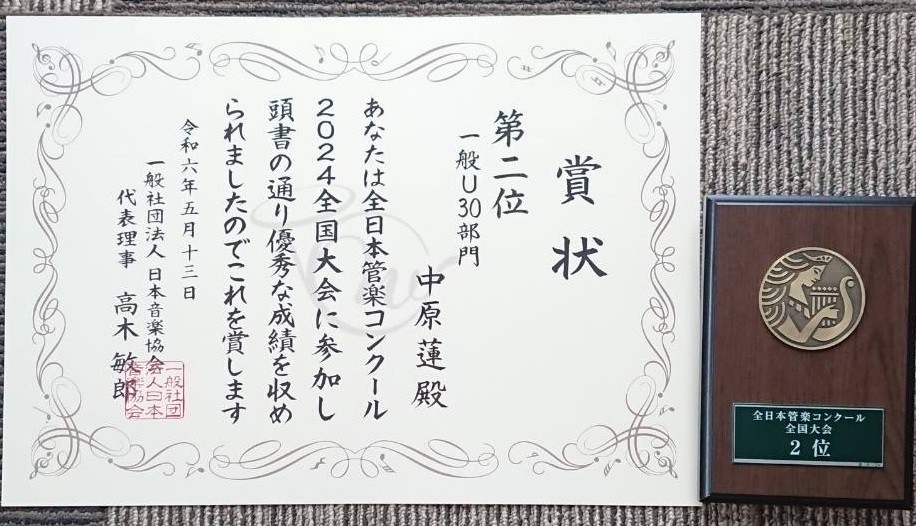 賞状
第二位
一般U30部門
中原蓮殿
あなたは全日本管楽コンクール
2024全国大会に参加し
頭書の通り優秀な成績を収め
られましたのでこれを賞します
令和六年五月十三日
一般社団法人日本音楽協会
代表理事 高木敏郎
一般社団
法人日本
音楽協会
全日本管楽コンクール
全国大会
2位